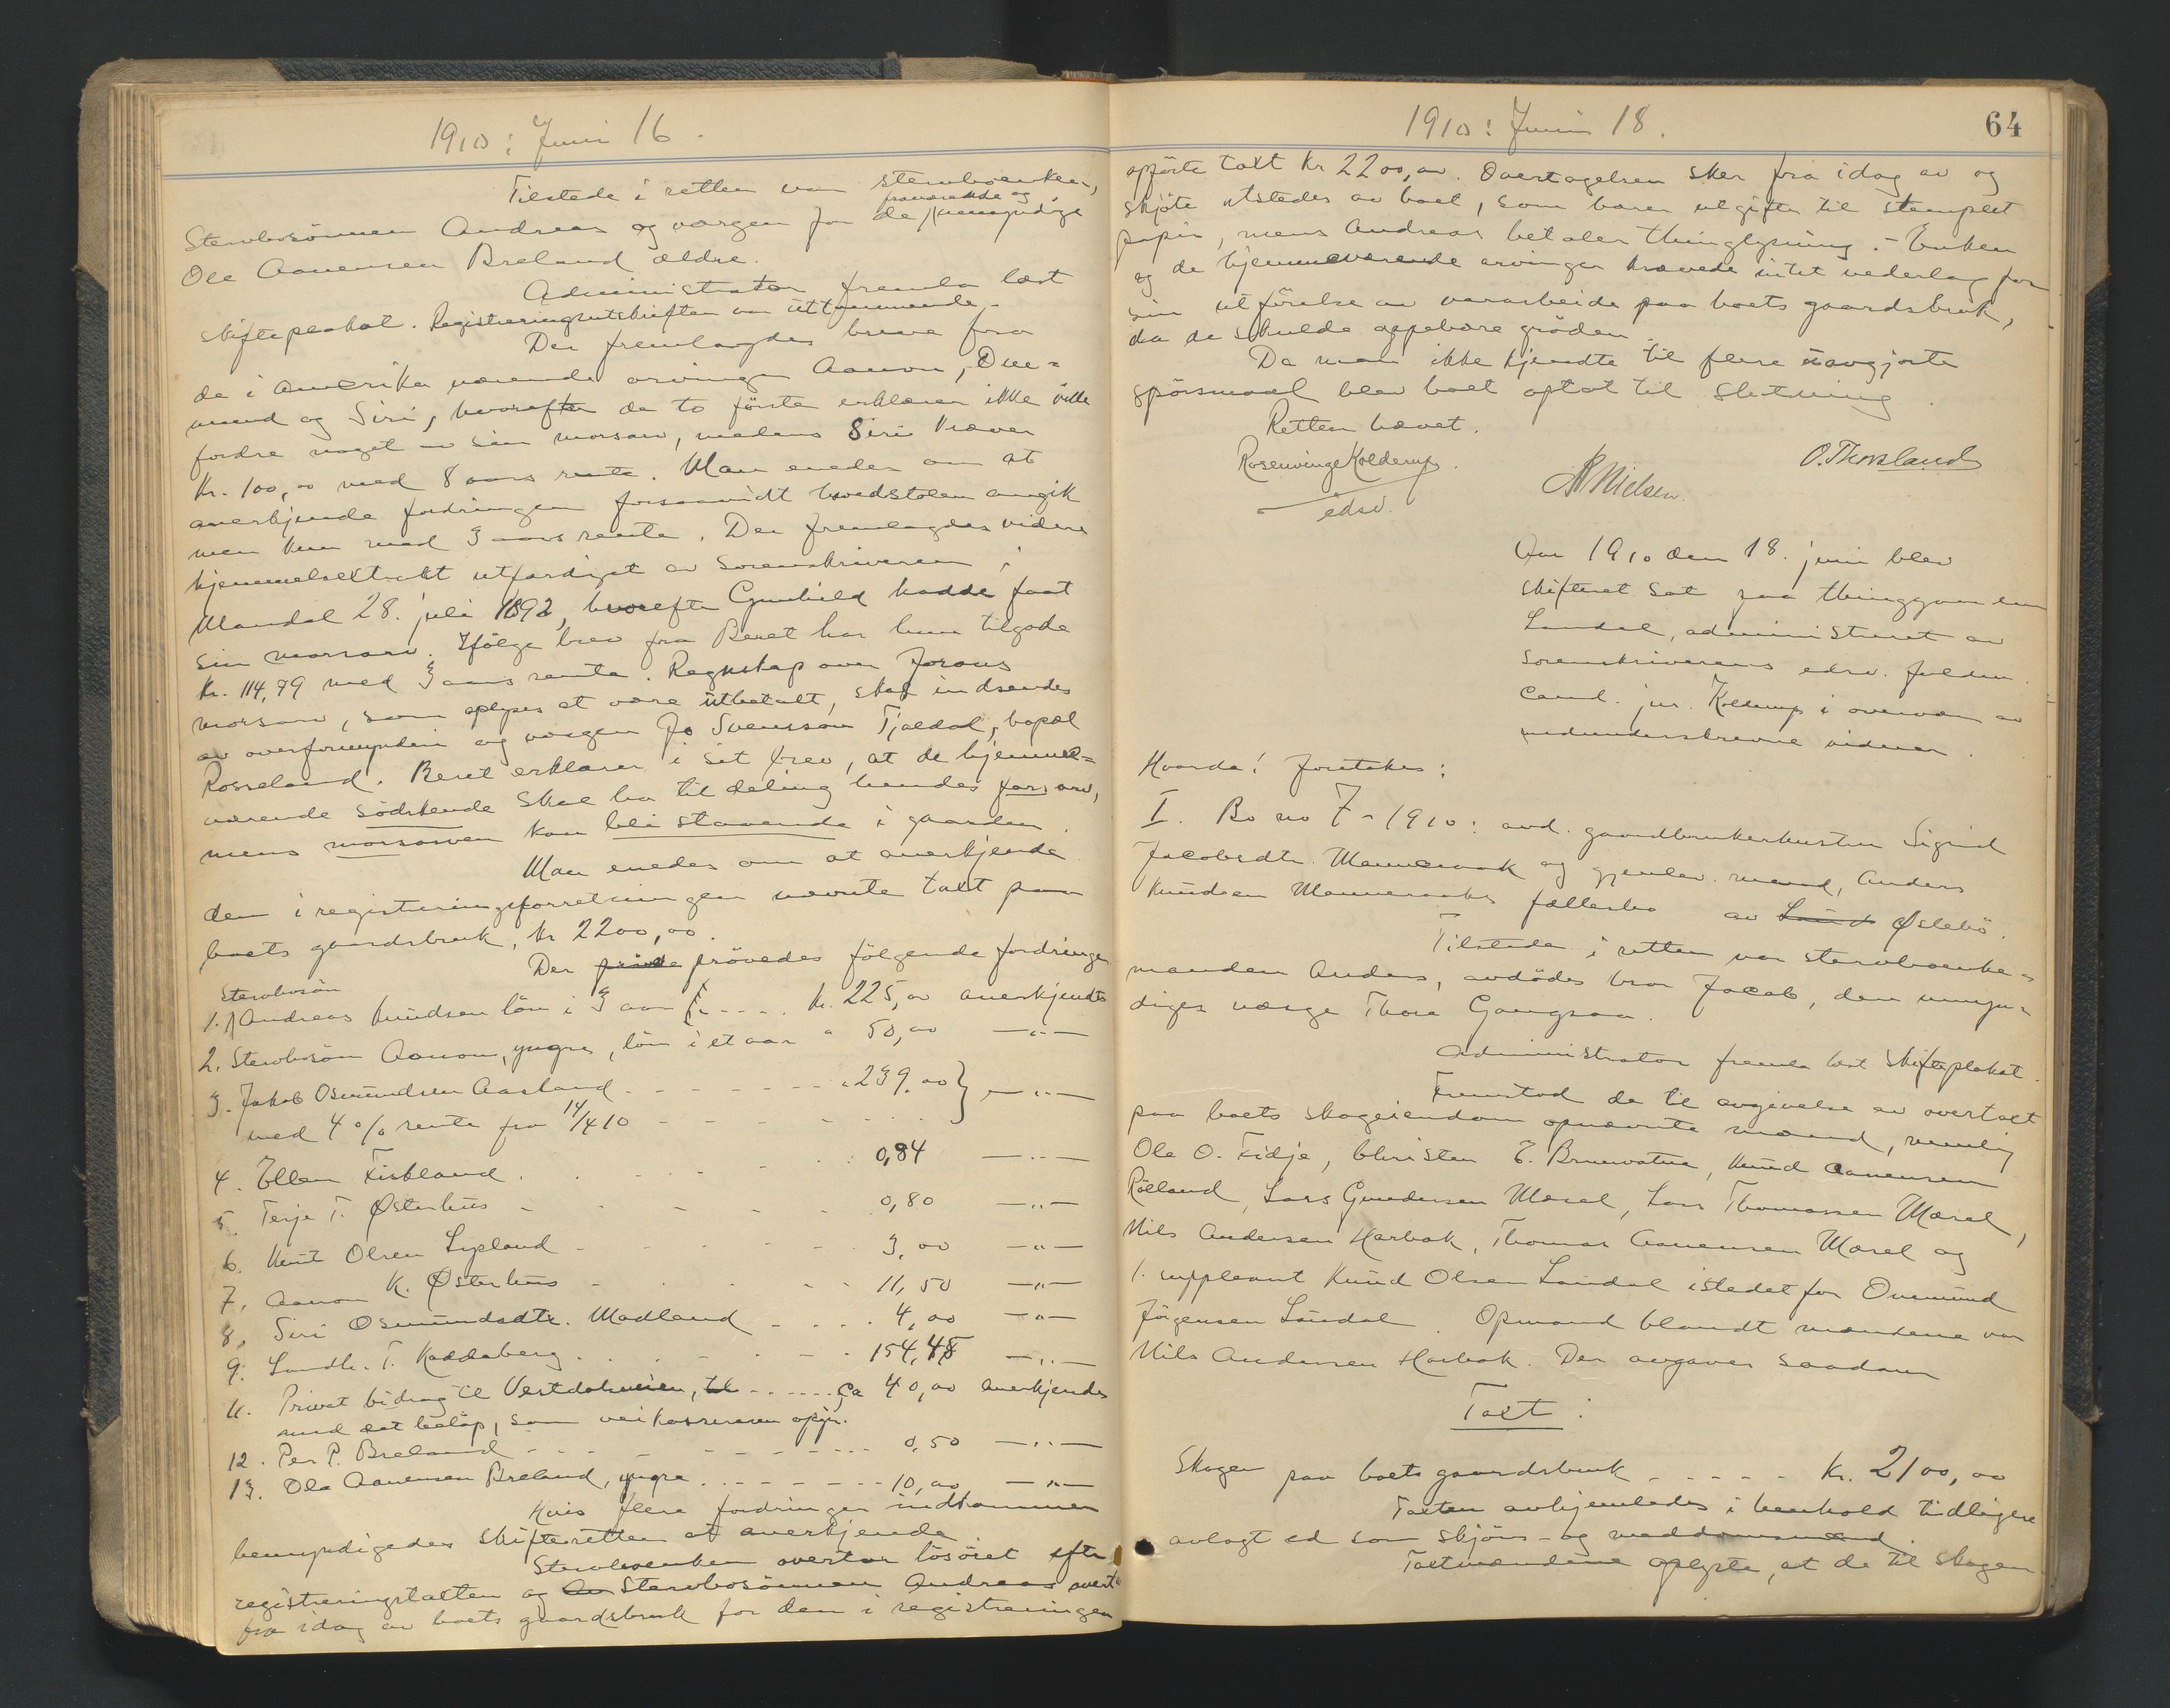 1910: Juni 16.
Tilstede i retten var stervboenken,
fraværende og
Stervbosönnen Andreas og værgen for de umyndige
Ole Aanensen Breland ældre.
Administrator fremla læst
skifteplakat. Registreringsutskriften var uttømmende.
Der fremlagdes breve fra
de i Amerika værende arvinger Aanon, Om=
mund og Siri, hvorefter de to förste erklærer ikke ville
fordre noget av sin morsarv, medens Siri kræver
Kr. 100,00 med 8 aars rente. Man enedes om at
anerkjende fordringen forsaavidt hovedstolen angik
men kun med 3 aars rente. Der fremlagdes videre
hjemmelsextrakt utfærdiget av Sorenskriveren i
Mandal 28. juli 1892, hvorefter Gunhild hadde faat
sin morsarv. Ifölge brev fra Beret har hun tilgode
Kr. 114,79 med 3 aars rente. Regnskap over Jorans
morsarv, som oplyses at være utbetalt, skal indsendes
av overformynderi og værgen Jo Svensson Tjaldal, bopæl
Rosseland. Beret erklærer i sit brev, at de hjemme=
værende södskende skal ha til deling hendes farsarv,
mens morsarven kan bli staaende i gaarden.
Man enedes om at anerkjende
den i registreringsforretningen nævnte takt paa
boets gaardsbruk, kr 2200,00.
Der prövedes följende fordringer
Stervbosön
1. Andreas Knudsen lön i 3 aar kr. 225,00 anerkjendtes
2. Stervbosön Aanon, yngre, lön i et aar " 50,00 —"—
3. Jakob Osmundsen Aasland " 239,00 } —"—
med 4 % rente fra 14/4 10
4. Ellen Fiskland 0,84 —"—
5. Terje T. Østerhus 0,80 —"—
6. Knut Olsen Lyland 3,00 —"—
7. Aanon K. Østerhus 11,50 —"—
8. Siri Osmundsdtr. Madland 4,00 —"—
9. Landh. T. Kaddeberg 154,48 —"—
11. Privat bidrag til Vestdalveien, ca 40,00 anerkjendes
med det belöp, som veikassereren opgir.
12. Per P. Breland 0,50 —"—
13. Ole Aanensen Breland, yngre 10,00 —"—
Hvis flere fordringer indkommer
bemyndigedes skifteretten at anerkjende
Stervboenken overtar lösöret efter
registreringstakten og Stervbosönnen Andreas overta
fra idag av boets gaardsbruk for den i registreringen
1910: Juni 18.
64
opförte takt Kr 2200,00. Overtagelsen sker fra idag av og
skjöte utstedes av boet, som bærer utgifter til stemplet
papir, mens Andreas betaler thinglysning. - Enken
og de hjemmeværende arvinger krævede intet vederlag for
sin utförelse av vaararbeide paa boets gaardsbruk,
da de skulde oppebære gröden.
Da man ikke kjendte til flere uavgjorte
spörsmaal blev boet optat til slutning.
Retten hævet.
Rosenvinge Kolderup.
edsv.
Nielsen.
O. Thorsland
Aar 1910 den 18. juni blev
skifteret sat paa thinggaarden
Laudal, administreret av
Sorenskriverens edsv. fuldm.
Cand. jur. Kolderup i overvær av
medunderskrevne vidner.
Hvorda! foretokes:
I. Bo no 7 - 1910: avd. gaardbrukerkusten Sigrid
Jacobsdtr. Manneraak og gjenlev. mand, Anders
Knudsen Manneraaks fællesbo av Øslebö.
Tilstede i retten var stervboenke=
manden Anders, avdödes bror Jacob, den umyn=
diges værge Thore Gangsaa.
Administrator fremla læst skifteplakat.
Fremstod de til avgivelse av overtakt
paa boets skogeiendom opnævnte mænd, nemlig
Ole O. Fidje, Christen E. Brunvatne, Knud Aanensen
Röiland, Lars Gundersen Mæsel, Lars Thomassen Mæsel,
Nils Andersen Harbak, Thomas Aanensen Mæsel og
1. suppleant Knud Olsen Laudal istedet for Ommund
Jörgensen Laudal. Opmand blandt mændene var
Nils Andersen Harbak. Der avgaves saadan
Taxt:
Skogen paa boets gaardsbruk Kr. 2100,00
Taxten avhjemledes i henhold tidligere
avlagt ed som skjöns- og meddomsmænd.
Taxtmændene oplyste, at de til skogen